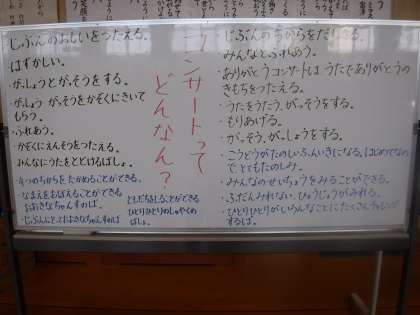 コンサートって
どんなん？
・じぶんのおもいをつたえる。
・はずかしい。
・がっしょうとがっそうをする。
・がっしょうがっそうをかぞくにきいて
もらう。
・ふれあう。
・かぞくにえんそうをつたえる。
・みんなにうたをとどけるばしょ。
・4つのちからをたかめることができる。
・なまえをおぼえることができる
おおきなちゃんすのば
・ともだちをしることができる
ひとりひとりのしゅやくの
ばしょ。
・じぶんにとっておおきなちゃんすのば
・じぶんのちからをだしきる。
・みんなとふれあう。
・ありがとうコンサートは、うたでありがとうの
きもちをつたえる。
・うたをうたう、がっそうをする。
・もりあげる。
・がっそう、がっしょうをする。
・こうどうがたのしいふんいきになる。はじめてなの
で、とてもたのしみ。
・みんなのせいちょうをみることができる。
・ふだんみれない、ひょうじょうがみれる。
・ひとりひとりがいろんなことにたくさんチャレンジ
するば。